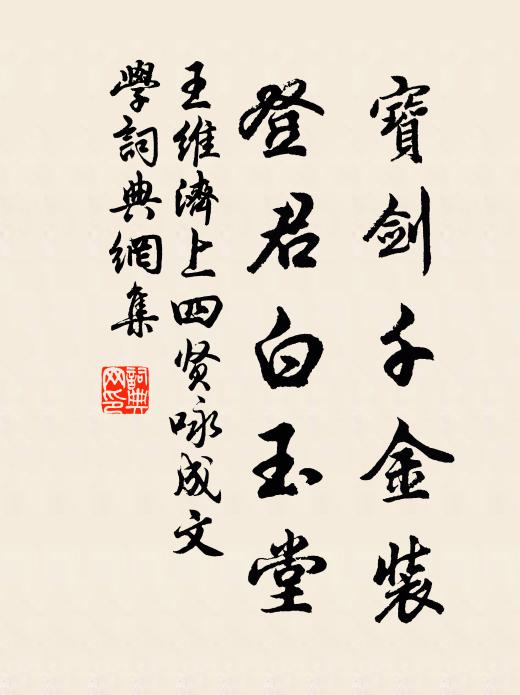 寶劍千金裝
登君白玉堂
王維濟上四贤咏成文
學詞典網集
詞典網印